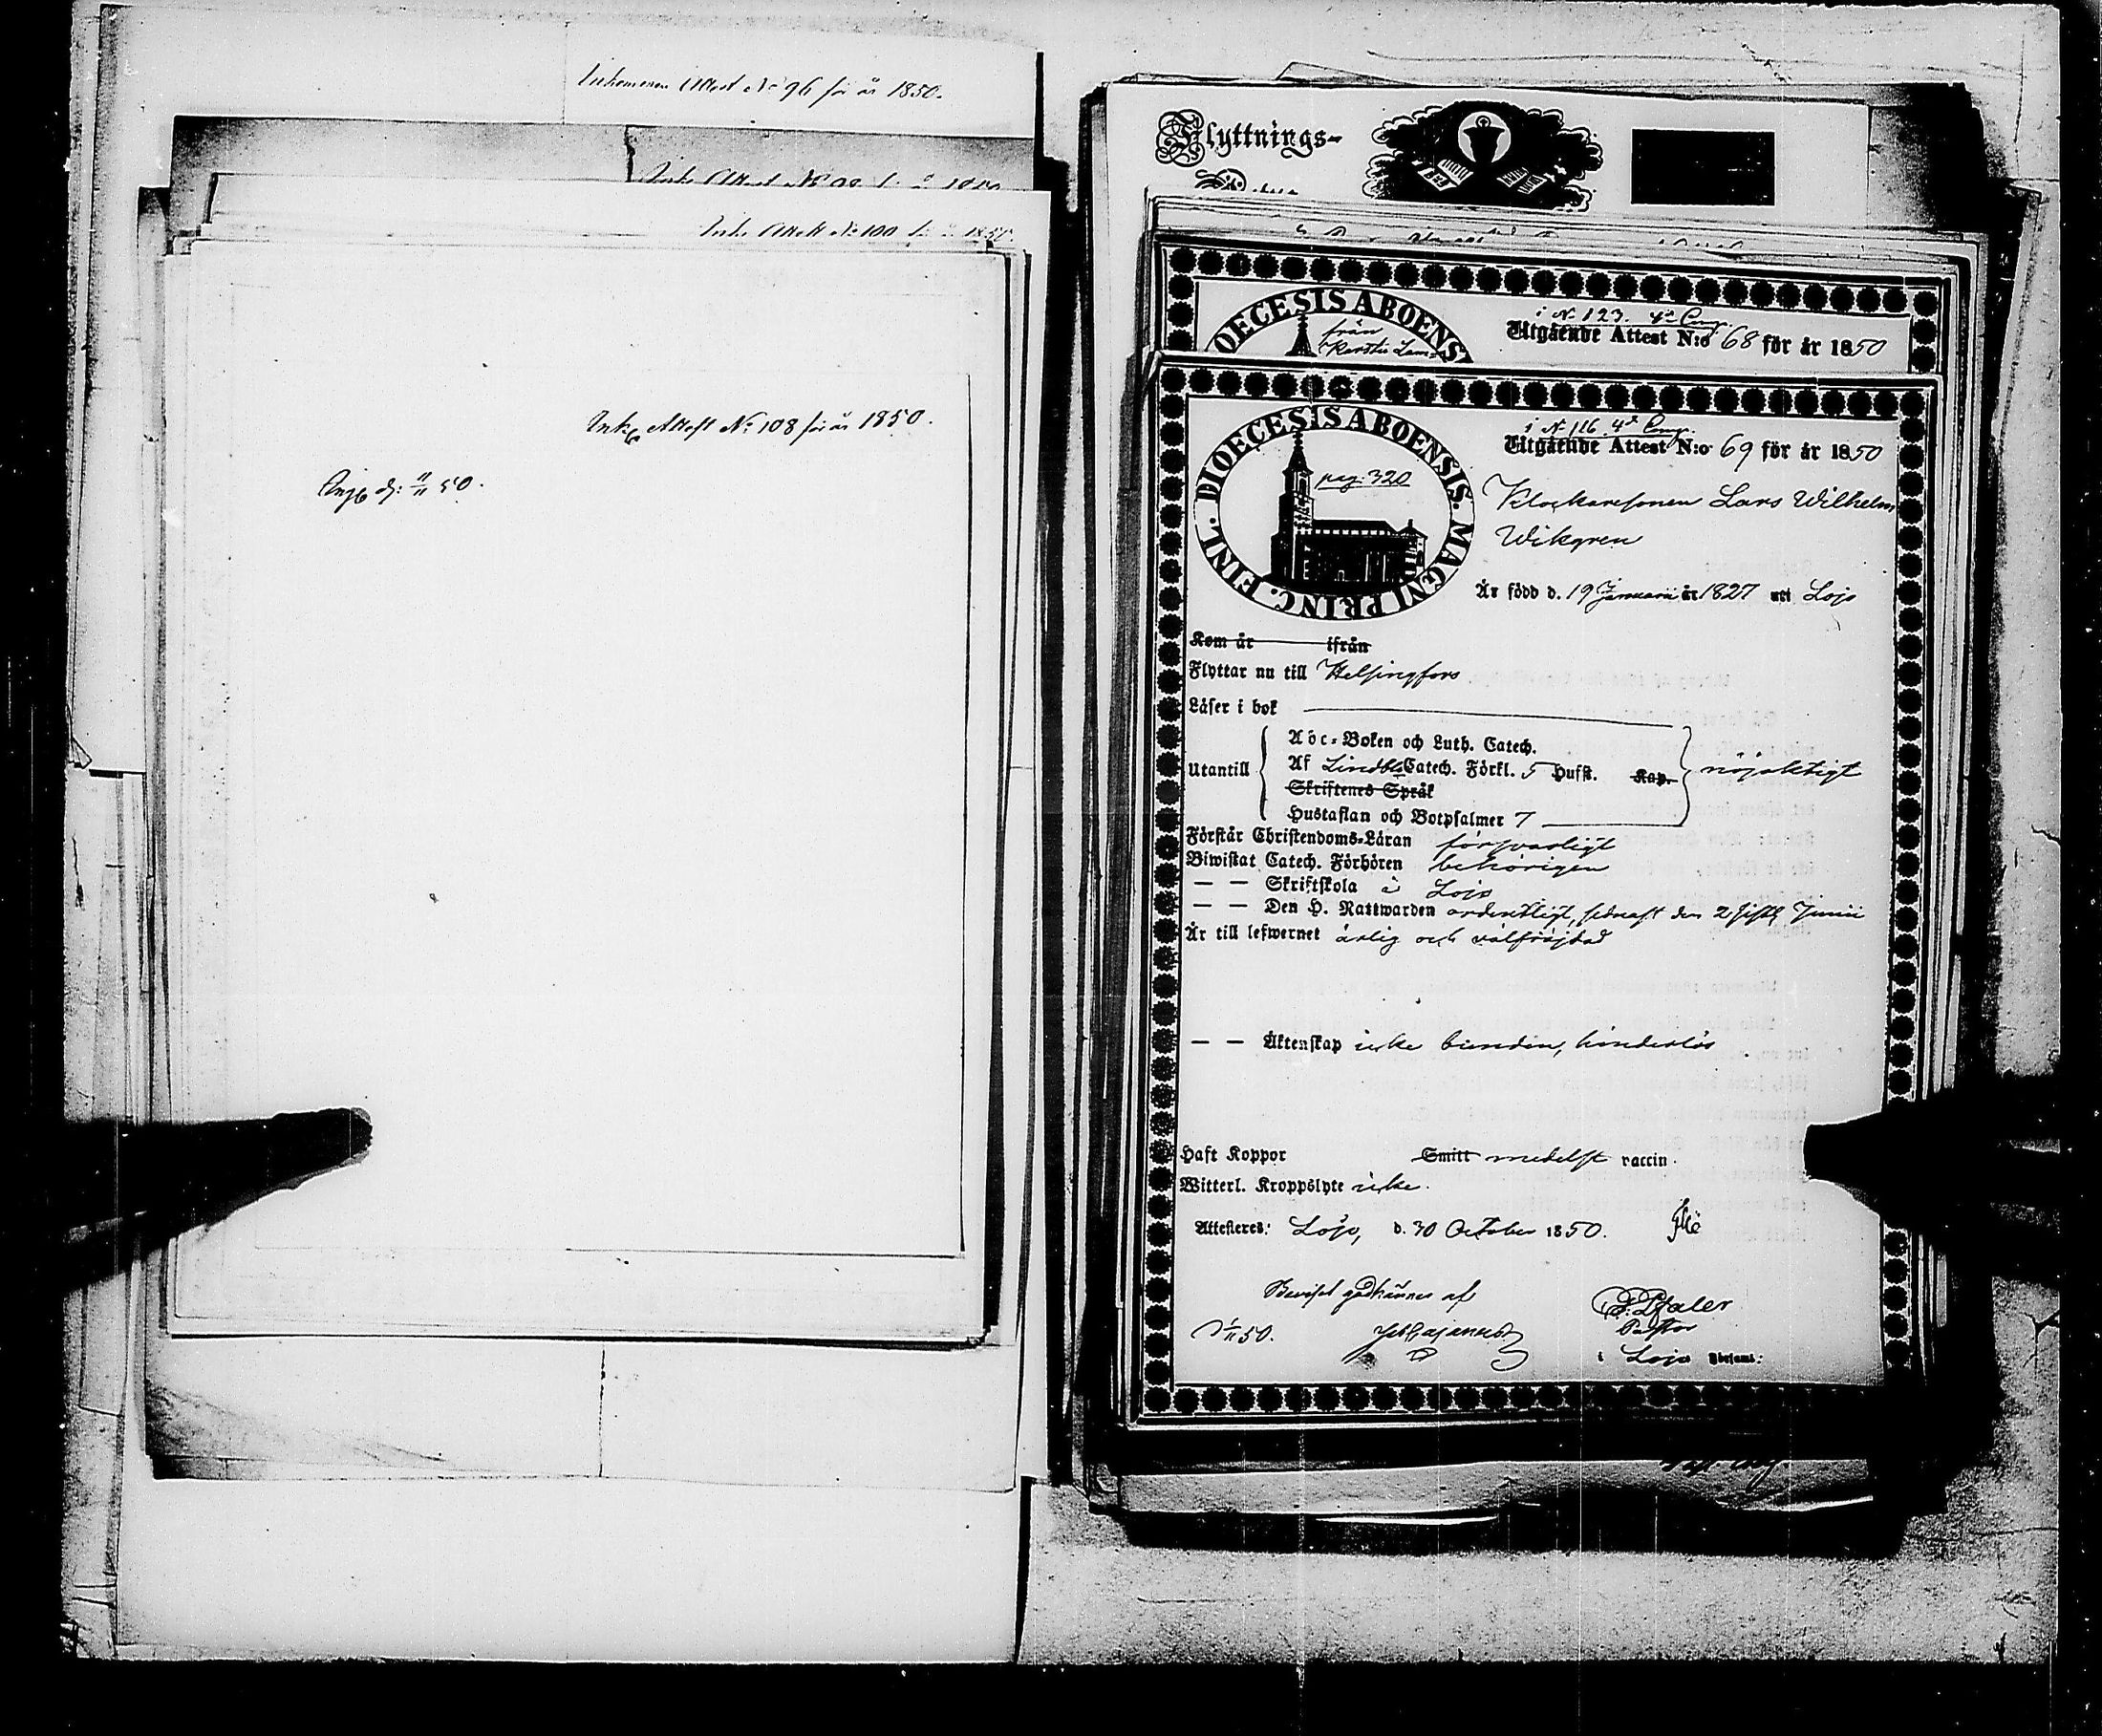 Inkommen Attest No 96 för år 1850.
Ink. Attest No 100 för år 1850.
Ink. Attest No 108 för år 1850.
50.
Flyttnings-
DIOECESIS ABOENSIS
från
i No 123. 4de Comp.
Utgående Attest N:o 68 för år 1850
DIOECESIS ABOENSIS. MAGNI PRINC. FINL.
pag. 320
i No 116. 4de Comp.
Utgående Attest N:o 69 för år 1850
Klockaresonen Lars Wilhelm
Wikgren
Är född d. 19 Januarii år 1827 uti Lojo
Kom år ifrån
Flyttar nu till Helsingfors
Läser i bok
Utantill
Abc-Boken och Luth. Catech.
Af Lindbl. Catech. Förkl. 5 Hufst. Kap.
Skriftenes Språk
Hustaflan och Botpsalmer 7
nöjaktigt
Förstår Christendoms-Läran försvarligt
Biwistat Catech. Förhören behörigen
— — Skriftskola i Lojo
— — Den H. Nattwarden ordentligt, sednast den 2 sistl. Junii
Är till lefwernet ärlig och välfräjdad
— — Äktenskap icke bunden, hinderlös
Haft Koppor Smitt medelst vaccin.
Witterl. Kroppslyte icke.
Attesteres: Lojo, d. 30 October 1850.
Beviset godkännes af
F. Pfaler
Pastor
i Lojo Församl:
50.